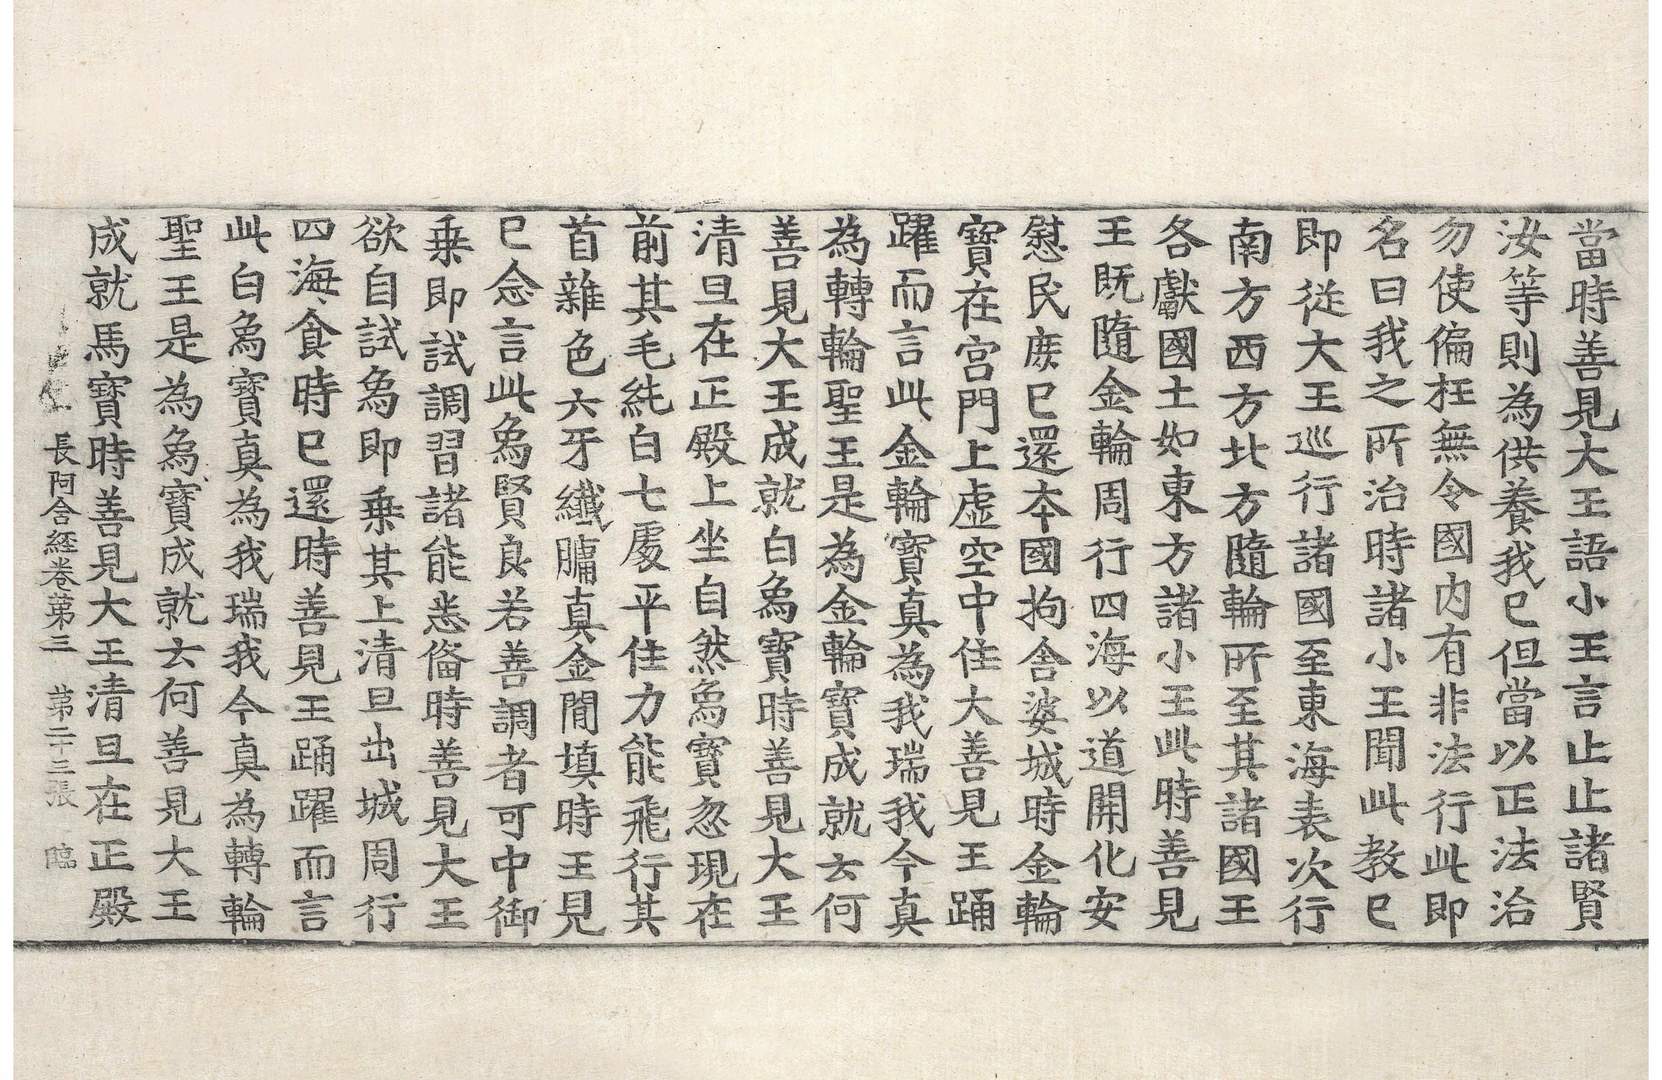 當時善見大王語小王言止止諸賢
汝等則為供養我已但當以正法治
勿使偏枉無令國内有非法行此即
名曰我之所治時諸小王聞此教已
即從大王巡行諸國至東海表次行
南方西方北方隨輪所至其諸國王
各獻國土如東方諸小王此時善見
王既隨金輪周行四海以道開化安
慰民庶已還本國拘舍婆城時金輪
寶在宮門上虛空中住大善見王踊
躍而言此金輪寶真為我瑞我今真
為轉輪聖王是為金輪寶成就云何
善見大王成就白象寶時善見大王
清旦在正殿上坐自然象寶忽現在
前其毛純白七處平住力能飛行其
首雜色六牙纖𦟛真金間填時王見
已念言此象賢良若善調者可中御
乘即試調習諸能悉俻時善見大王
欲自試象即乘其上清旦出城周行
四海食時已還時善見王踊躍而言
此白象寶真為我瑞我今真為轉輪
聖王是為象寶成就云何善見大王
成就馬寶時善見大王清旦在正殿
長阿含経卷第三 第二十三張 臨